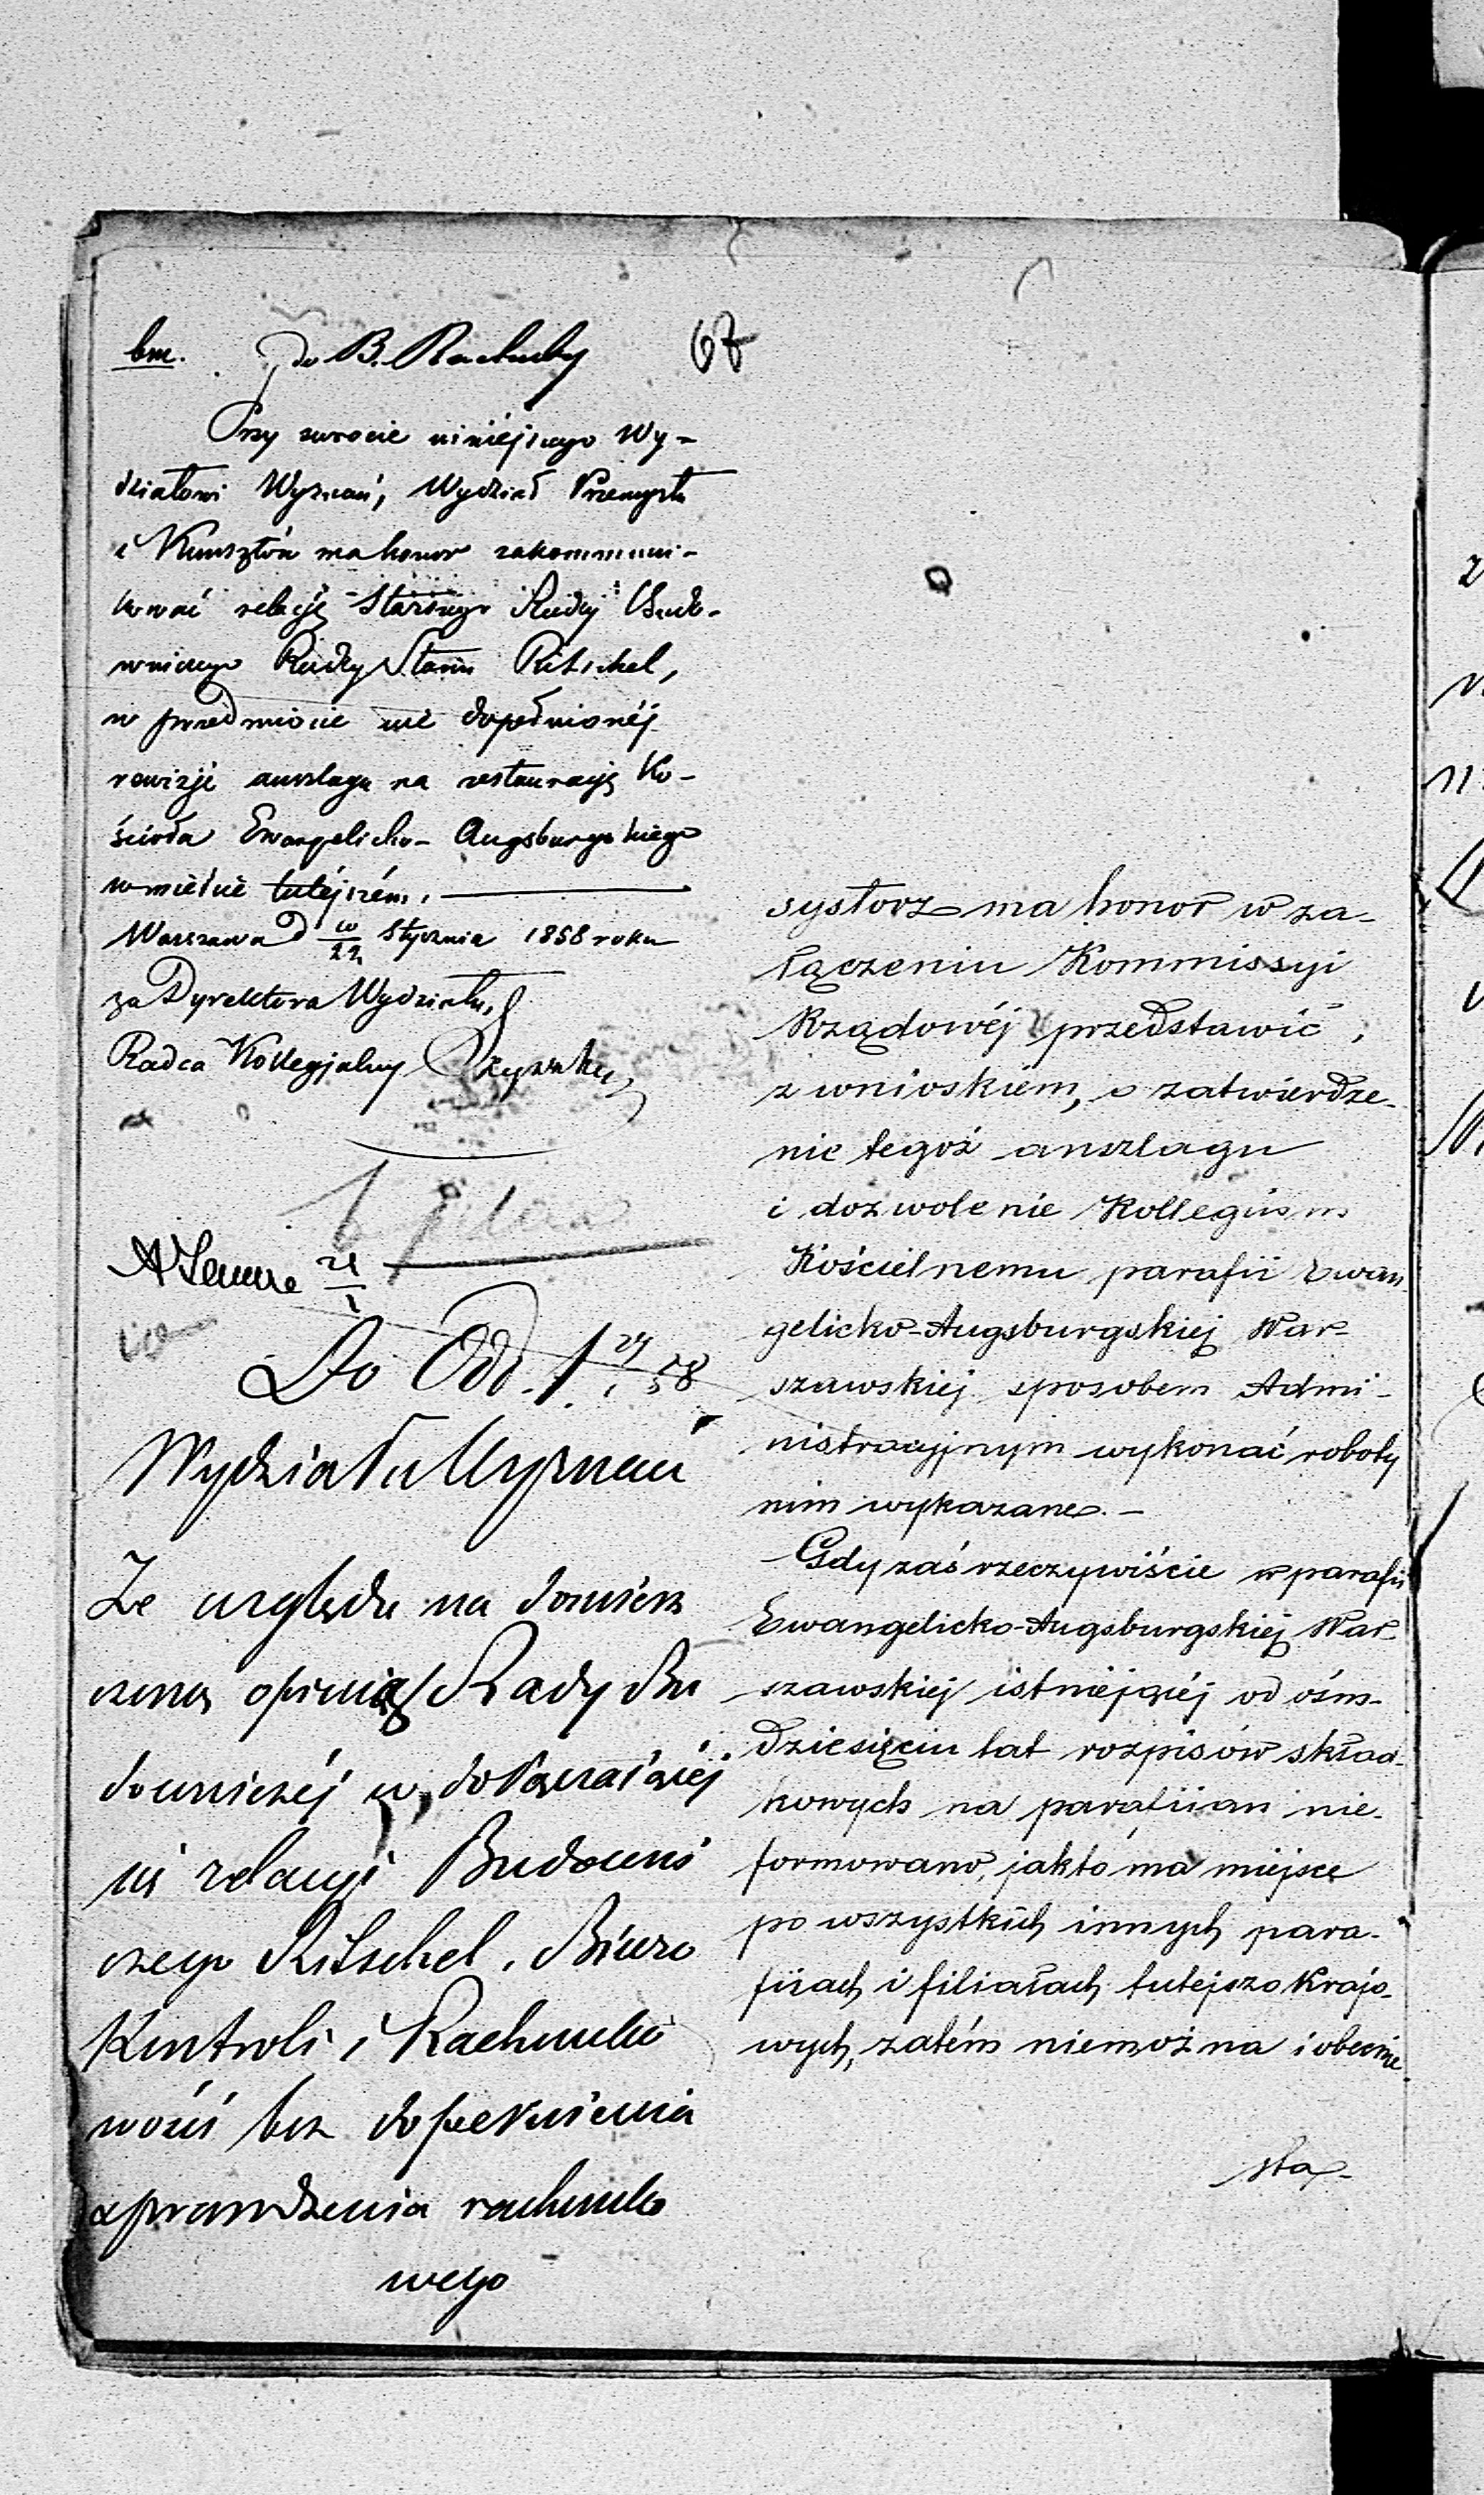 bm. do B. Rachuby 67
Przy zwrocie niniejszego Wy-
działowi Wyznań, Wydział Przemysłu
i Kunsztów ma honor zakommuni-
kować relacyę Starszego Radcy Budo-
wniczego Radcy Stanu Ritschel,
w przedmiocie nie dopełnionéj
rewizji anszlagu na restauracyę Ko-
ścioła Ewangelicko-Augsburgskiego
w mieście tutéjszém.
Warszawa d 10/22 Stycznia 1858 roku
za Dyrektora Wydziału,
Radca Kollegjalny
21/1
Do Odd. 1. 29/1 58
Wydziału Wyznań
Ze względu na
opinię Rady Bu
downiczéj w
relacyi Budowni
czego Ritschel, Biuro
Kontroli i Rachunko
wości bez dopełnienia
sprawdzenia rachunko
wego
systorz ma honor w za-
łączeniu Kommissyi
Rządowéj przedstawić,
z wnioskiem, o zatwierdze-
nie tegoż anszlagu
i dozwolenie Kollegium
Kościelnemu parafii Ewan
gelicko-Augsburgskiej War-
szawskiej sposobem Admi-
nistracyjnym wykonać roboty
nim wykazane.-
Gdy zaś rzeczywiście w parafii
Ewangelicko-Augsburgskiej War-
szawskiej istniejącéj od óśm-
dziesięciu lat rozpisów skład-
kowych na parafiian nie-
formowano, jak to ma miejsce
po wszystkich innych para-
fiiach i filiałach tutejszo krajo-
wych, zatém niemożna i obecnie
sta-